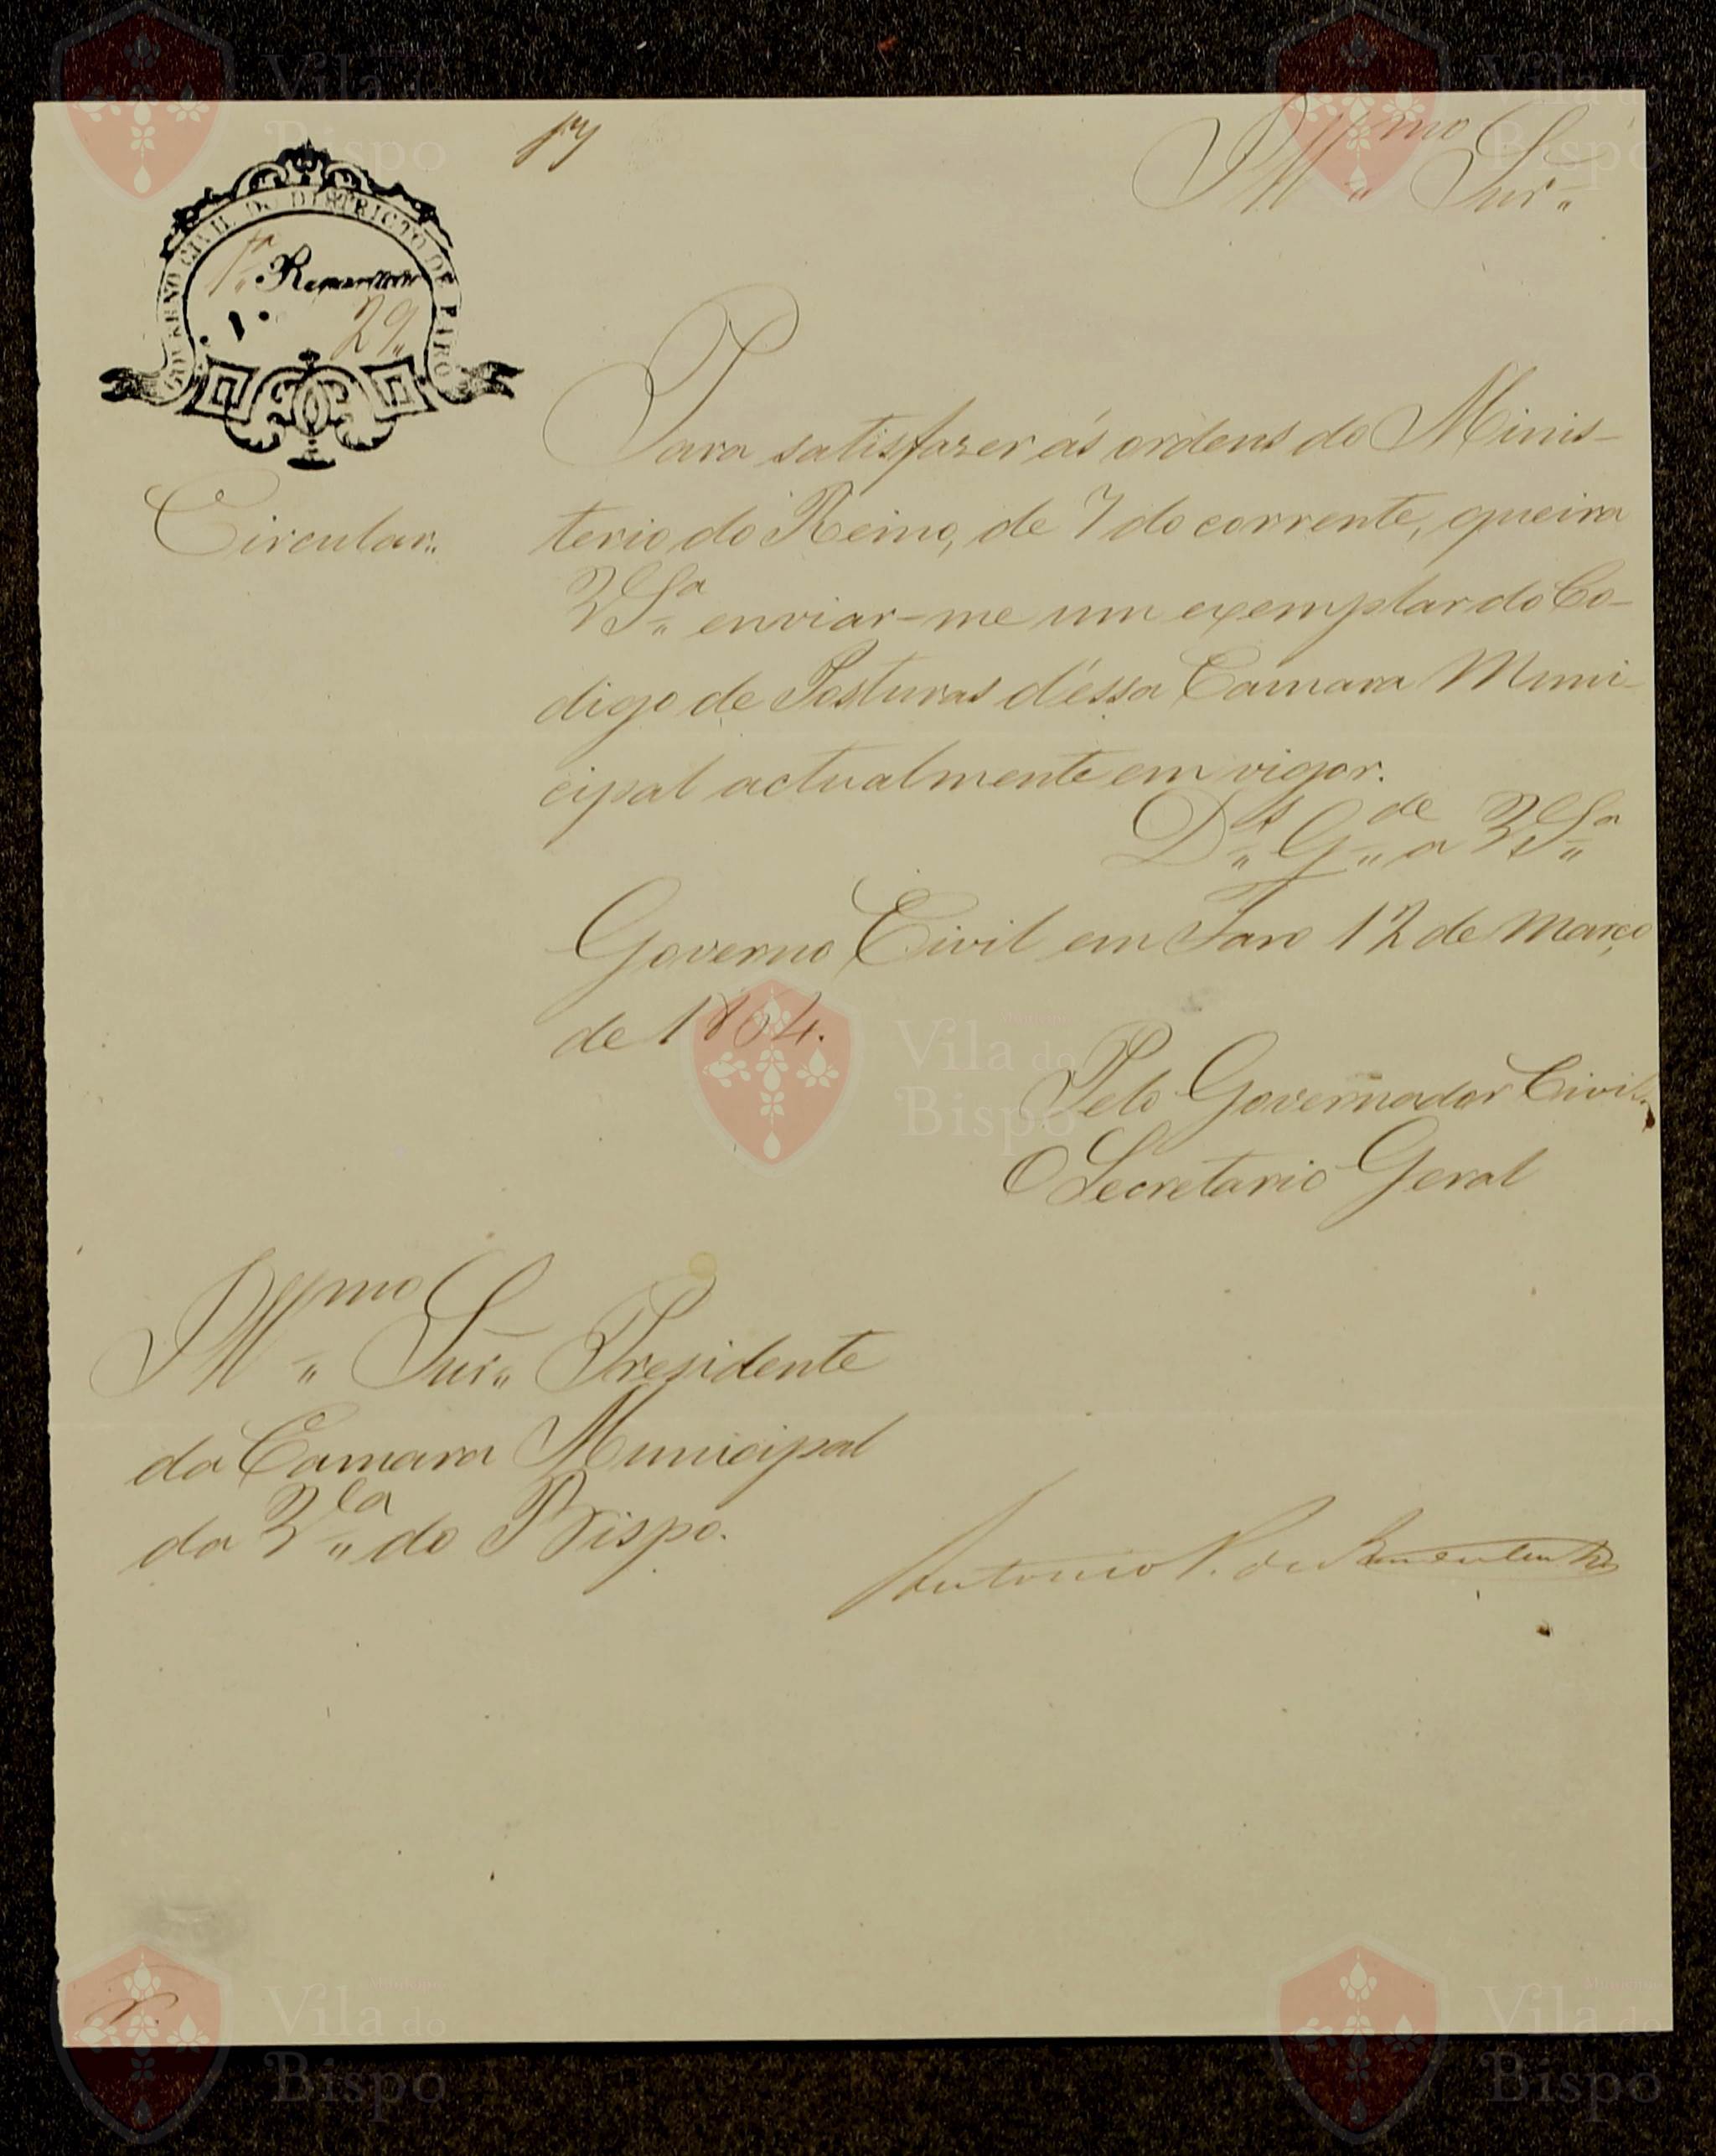 17
Illmo Snr.
GOVERNO CIVIL DO DISTRICTO DE FARO
1ª Repartição
N.º 29
Circular.
Para satisfazer ás ordens do Minis-
terio do Reino, de 7 do corrente, queira
V.Sª enviar-me um exemplar do Co-
digo de Posturas d'éssa Camara Muni-
cipal actualmente em vigor.
Ds. Gde a V.Sª
Governo Civil em Faro 12 de Março
de 1864.
Pelo Governador Civil.
O Secretario Geral
Illmo Snr. Presidente
da Camara Municipal
da Vla do Bispo.
Antonio
Vila do
Bispo
Vila do
Bispo
Município
Vila do
Bispo
Município
Vila do
Bispo
Município
Vila do
Bispo